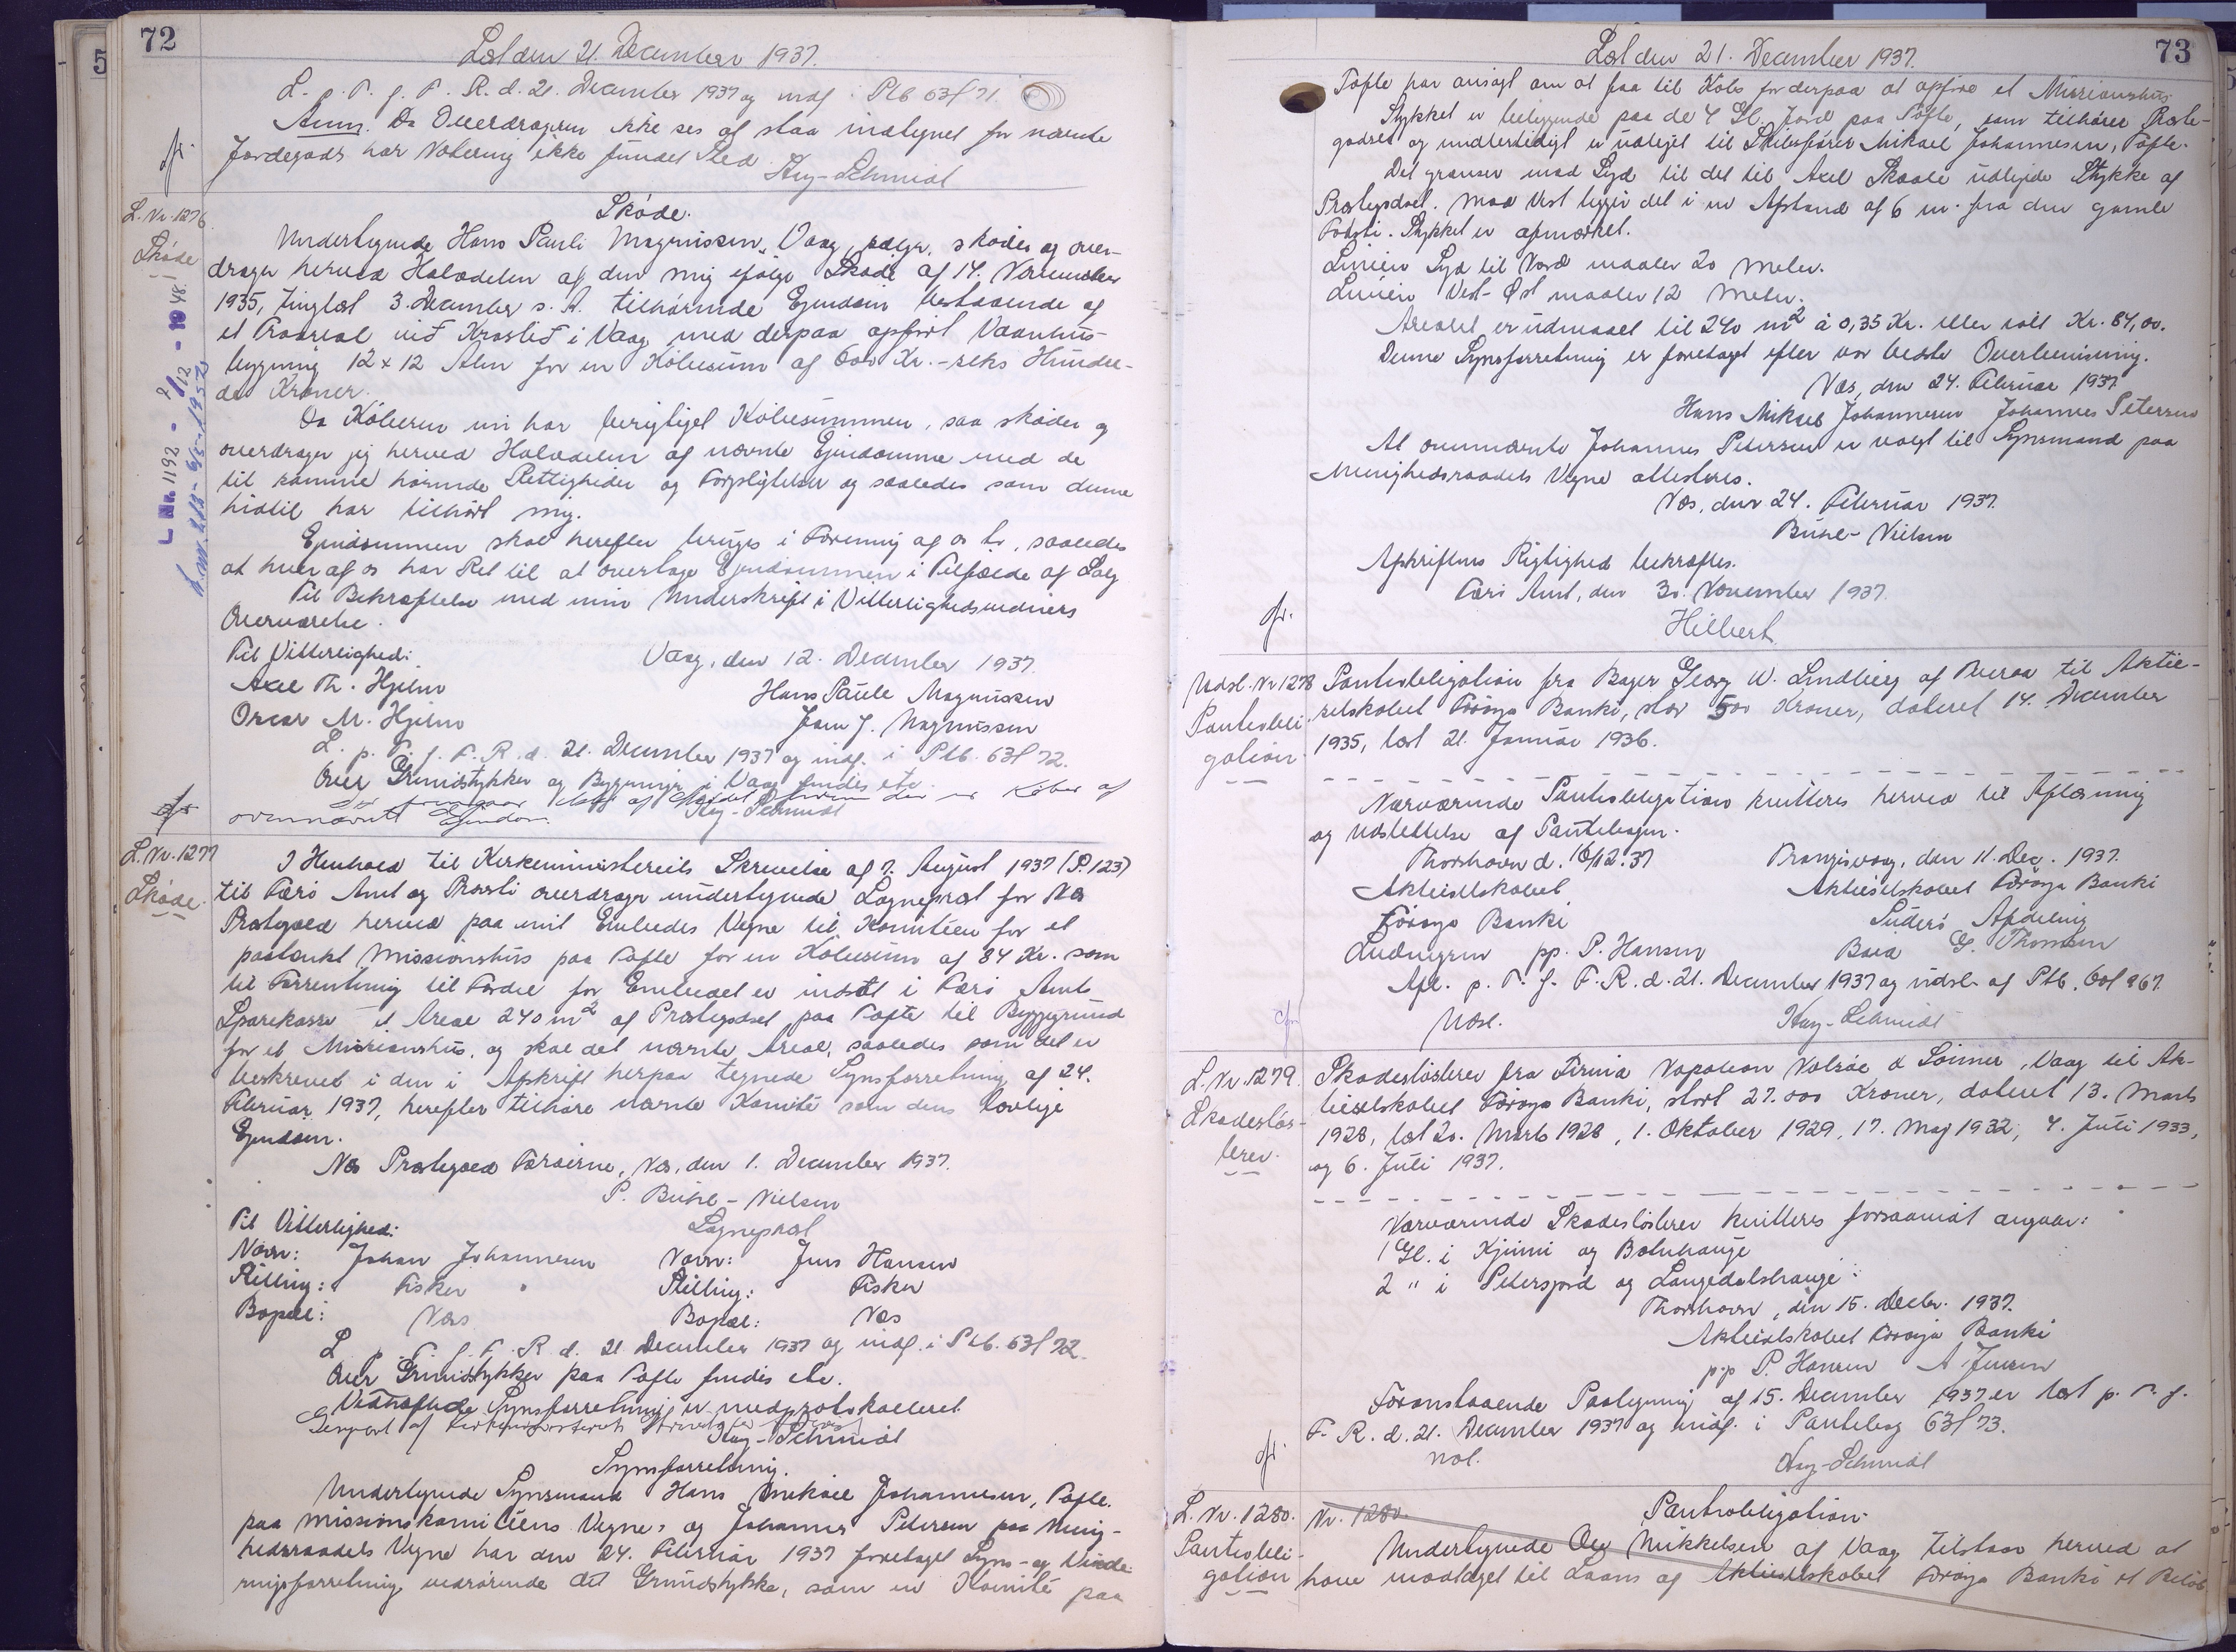 72
Læst den 21. December 1937.
L. p. T. f. F. R. d. 21. December 1937 og indf. i Ptb 63f 71.
Anm. Da Overdrageren ikke ses at staa indtegnet for nævnte
Jordegods har Notering ikke fundet Sted.
Hey-Schmidt
L. Nr. 1276
Skøde
L. Nr. 1192 - 2/12 - 1948.
Skøde.
Undertegnede Hans Pauli Magnussen, Vaag, sælger, skøder og over-
drager herved Halvdelen af den mig ifølge Skøde af 14. November
1935, tinglæst 3. December s. A. tilhørende Ejendom bestaaende af
et Traðreal við Krosslið i Vaag med derpaa opført Vaanhus-
bygning 12 x 12 Alen for en Købesum af 600 Kr. - seks Hundre-
de Kroner.
Da Køberen nu har berigtiget Købesummen, saa skøder og
overdrager jeg herved Halvdelen af nævnte Ejendomme med de
til samme hørende Rettigheder og Forpligtelser og saaledes som denne
hidtil har tilhørt mig.
Ejendommen skal herefter bruges i Forening af os to, saaledes
at hver af os har Ret til at overtage Ejendommen i Tilfælde af Salg
Til Bekræftelse med min Underskrift i Vitterlighedsvidners
Overværelse.
Til Vitterlighed:
Vaag, den 12. December 1937.
Axel Th. Hjelm
Hans Pauli Magnussen
Oscar M. Hjelm
Magnussen
L. p. T. f. F. R. d. 21. December 1937 og indf. i Ptb. 63f 72.
Over Grundstykker og Bygninger i Vaag findes etc.
Køber af
ovennævnte Ejendom.
Hey-Schmidt
L. Nr. 1277
Skøde.
I Henhold til Kirkeministeriets Skrivelse af 7. August 1937 (P. 123)
til Færø Amt og Provsti overdrager undertegnede Sognepræst for Næs
Præstegæld herved paa mit Embedes Vegne til Komitéen for et
paatænkt Missionshus paa Tofte for en Købesum af 84 Kr. som
til Forrentning til Fordel for Embedet er indsat i Færø Amts
Sparekasse et Areal 240 m² af Præstegodset paa Tofte til Byggegrund
for et Missionshus, og skal det nævnte Areal, saaledes som det er
beskrevet i den i Afskrift herpaa tegnede Synsforretning af 24.
Februar 1937, herefter tilhøre nævnte Komité som dens lovlige
Ejendom.
Næs Præstegæld Færøerne, Næs, den 1. December 1937.
P. Bühl-Nielsen
Til Vitterlighed:
Sognepræst
Navn: Johan Johannesen Navn: Jens Hansen
Stilling: Fisker Stilling: Fisker
Bopæl: Næs Bopæl: Næs
L. p. T. f. F. R. d. 21 December 1937 og indf. i Ptb. 63f 72.
Over Grundstykker paa Tofte findes etc.
Vedhæftede Synsforretning er medprotokolleret.
Genpart af Kirkeministeriets Skrivelse
Hey-Schmidt
Synsforretning.
Undertegnede Synsmænd Hans Mikael Johannesen, Tofte.
paa Missionskomitéens Vegne, og Johannes Petersen paa Menig-
hedsraadets Vegne har den 24. Februar 1937 foretaget Syns- og Vurde-
ringsforretning vedrørende det Grundstykke, som en Komité paa
73
Læst den 21. December 1937.
Tofte har ansøgt om at faa til Købs for derpaa at opføre et Missionshus.
Stykket er beliggende paa de 4 Gl. Jord paa Tofte, som tilhører Præste-
godset og midlertidigt er udlejet til Skibsfører Mikael Johannesen, Tofte.
Det grænser mod Syd til det til Axel Skaale udlejede Stykke af
Præstegodset. Mod Vest ligger det i en Afstand af 6 m. fra den gamle
Fodsti. Stykket er afmærket.
Linien Syd til Nord maaler 20 Meter.
Linien Vest-Øst maaler 12 Meter.
Arealet er udmaalt til 240 m² à 0,35 Kr. eller ialt Kr. 84,00.
Denne Synsforretning er foretaget efter vor bedste Overbevisning.
Næs, den 24. Februar 1937
Hans Mikael Johannesen Johannes Petersen
At ovennævnte Johannes Petersen er valgt til Synsmand paa
Menighedsraadets Vegne attesteres.
Næs, den 24. Februar 1937.
Bühl-Nielsen
Afskriftens Rigtighed bekræftes.
Færø Amt, den 30. November 1937.
Hilbert
Udsl. Nr. 1278
Pantobli-
gation
Pantobligation fra Bager Georg W. Lindberg af Tveraa til Aktie-
selskabet Føroya Banki, stor 500 Kroner, dateret 14. December
1935, læst 21. Januar 1936.
Nærværende Pantobligation kvitteres herved til Aflæsning
og Udslettelse af Pantebogen.
Thorshavn d. 16/12.37
Trangisvaag, den 11. Dec. 1937.
Aktieselskabet
Aktieselskabet Føroya Banki
Føroya Banki
Suderø Afdeling
pp. P. Hansen
G. Thomsen
Afl. p. T. f. F. R. d. 21. December 1937 og udsl. af Ptb. 60f 267.
Udsl.
Hey-Schmidt
L. Nr. 1279.
Skadesløs-
brev.
Skadesløsbrev fra Firma Napoleon Nolsøe & Sønner, Vaag til Ak-
tieselskabet Føroya Banki, stort 27.000 Kroner, dateret 13. Marts
1928, læst 20. Marts 1928, 1. Oktober 1929, 17. Maj 1932, 4. Juli 1933,
og 6. Juli 1937.
Nærværende Skadesløsbrev kvitteres forsaavidt angaar:
1 Gl. i Kjinni og Botnhauge
2 " i Petersjord og Langedalshauge
Thorshavn, den 15. Decbr. 1937.
Aktieselskabet Føroya Banki
p.p P. Hansen A. Jensen
Foranstaaende Paategning af 15. December 1937 er læst p. T. f.
F. R. d. 21. December 1937 og indf. i Pantebog 63f 73.
not.
Hey-Schmidt
L. Nr. 1280.
Pantobli-
gation
Nr. 1280.
Pantobligation.
Undertegnede Mikkelsen af Vaag tilstaar herved at
have modtaget til Laans af Aktieselskabet Føroya Banki et Beløb